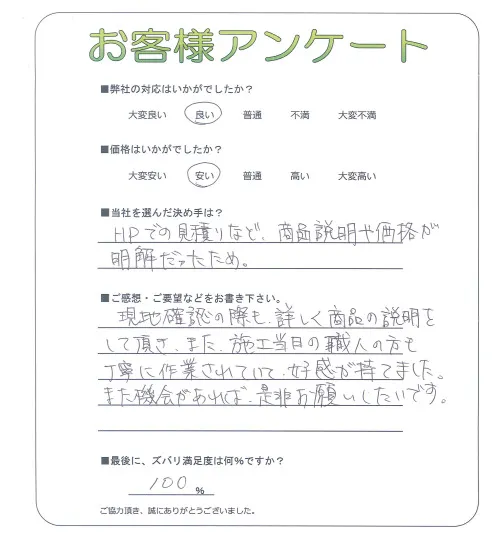 お客様アンケート
■弊社の対応はいかがでしたか？
大変良い 良い 普通 不満 大変不満
■価格はいかがでしたか？
大変安い 安い 普通 高い 大変高い
■当社を選んだ決め手は？
HPでの見積りなど、商品説明や価格が
明解だったため。
■ご感想・ご要望などをお書き下さい。
現地確認の際も、詳しく商品の説明を
して頂き、また、施工当日の職人の方も
丁寧に作業されていて、好感が持てました。
また機会があれば、是非お願いしたいです。
■最後に、ズバリ満足度は何%ですか？
100 %
ご協力頂き、誠にありがとうございました。